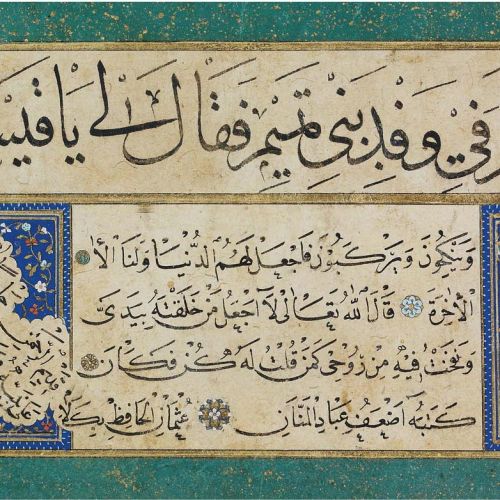 في وَفْدِ بَنِي تَمِيمٍ فَقَالَ لِي يَا قَيْسُ
وَيَنْكِحُونَ وَيَرْكَبُونَ فَاجْعَلْ لَهُمُ الدُّنْيَا وَلَنَا الْاٰ
الْاٰخِرَةَ قَالَ اللّٰهُ تَعَالٰى لَا اَجْعَلُ مَنْ خَلَقْتُهُ بِيَدَيَّ
وَنَفَخْتُ فِيهِ مِنْ رُوحِي كَمَنْ قُلْتُ لَهُ كُنْ فَكَانَ
كَتَبَهُ اَضْعَفُ عِبَادِ الْمَنَّانِ عُثْمَانُ الْحَافِظُ بِكَلَا